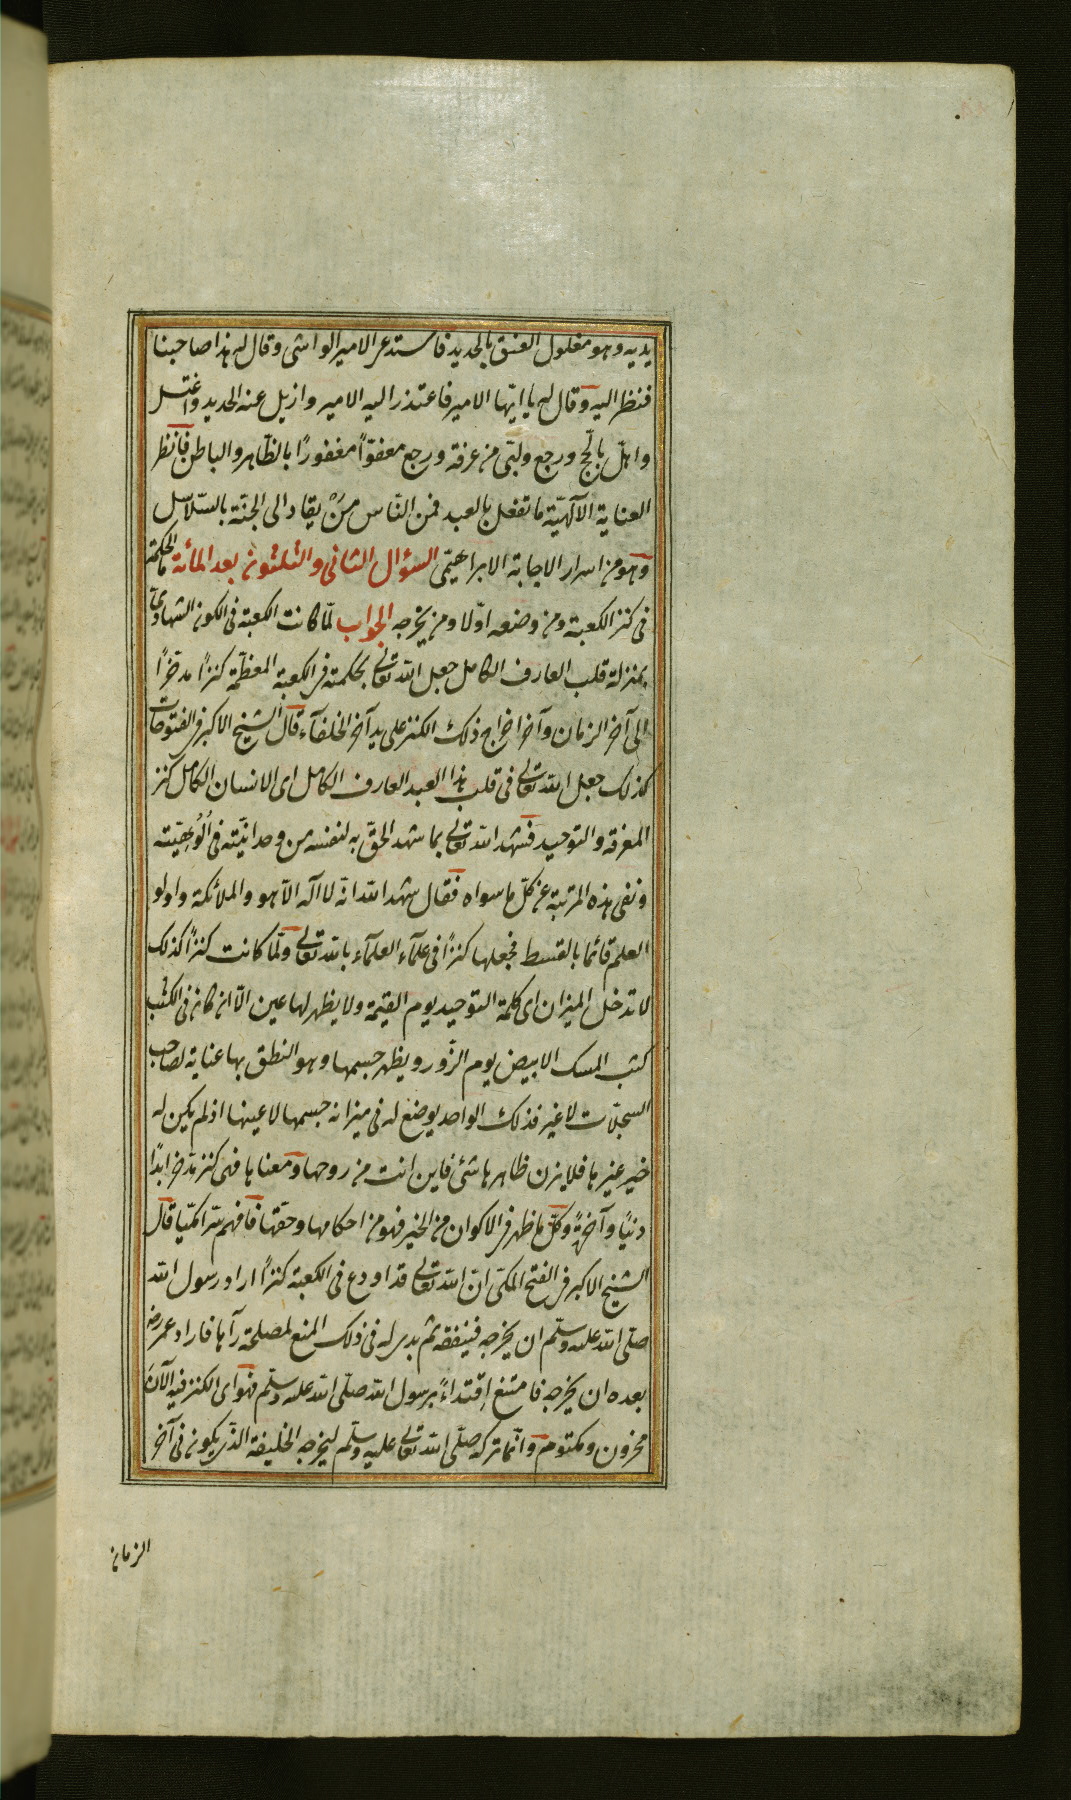 يديه وهو مغلول العنق بالحديد فاستدعى الامير الواشى وقال له هذا صاحبنا
فنظر اليه وقال له يا ايّها الامير فاعتذر اليه الامير وازيل عنه الحديد واغتسل
واهلّ بالحجّ ورجع ولبّى من عرفة ورجع معفوّاً مغفورًا بالظّاهر والباطن فانظر
العناية الآلهيّة ما تفعل بالعبد فمن النّاس مَنْ يقاد الى الجنّة بالسّلاسل
وهو من اسرار الاجابة الابراهيمى السؤال الثانى والثلثون بعد المأئة ما الحكمة
فى كنز الكعبة ومن وضعه اوّلا ومن يخرجه الجواب لمّا كانت الكعبة فى الكون الشهادىّ
بمنزلة قلب العارف الكامل جعل الله تعالى بحكمته فى الكعبة المعظّمة كنزاً مدّخرًا
الى آخر الزمان وآخر اخراج ذلك الكنز على يد آخر الخلفآء قال الشيخ الاكبر فى الفتوحات
كذلك جعل الله تعالى فى قلب هذا العبد العارف الكامل اى الانسان الكامل كنز
المعرفة والتوحيد فشهد الله تعالى بما شهد الحقّ به لنفسه من وحدانيّته فى اُلُوهِيّته
ونفى هذه المرتبة عن كلّ ما سواه فقال شهد الله انّه لا اله الّا هو والملائكة واولو
العلم قائما بالقسط فجعلها كنزاً فى علمآء العلمآء بالله تعالى ولمّا كانت كنزاً كذلك
لا تدخل الميزان اى كلمة التوحيد يوم القيمة ولا يظهر لها عين الّا ان كان فى الكثيب
كثب المسك الابيض يوم الزّور ويظهر جسمها وهو النطق بها عناية لصاحب
السجلّات لا غير فذلك الواحد يوضع له فى ميزانه جسمها لا عينها اذ لم يكن له
خير غيرها فلا يزن ظاهرها شئ فاين انت من روحها ومعناها فهى كنز مدّخر ابدًا
دنيًا وآخرةً وكلّ ما ظهر فى الاكوان من الخير فهو من احكامها وحقّها فافهم سرّ اكميا قال
الشيخ الاكبر فى الفتح المكىّ انّ الله تعالى قد اودع فى الكعبة كنزاً اراد رسول الله
صلّى الله عليه وسلّم ان يخرجه فينفقه ثم بدى له فى ذلك المنع لمصلحة رآها فاراد عمر رضه
بعده ان يخرجه فامتنع اِقتداءً برسول الله صلّى الله عليه وسلّم فهو اى الكنز فيه الآنَ
مخزون ومكتوم وانّما تركه صلّى الله تعالى عليه وسلّم ليخرجه الخليفة الذى يكون فى آخر
الزمان